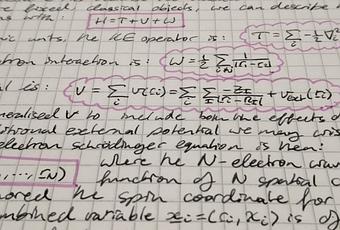 fixed classical objects, we can describe
with: H = T + V + W
units, the KE operator is: T = Σ_i -½∇_i²
interaction is: W = ½ Σ_{i≠j} 1/|r_i - r_j|
is: V = Σ_i v(r_i) = Σ_i Σ_I -Z_I/|r_i - R_I| + v_ext(r_i)
generalised V to include both the effects of
external potential we may wish
electron Schrödinger equation is then:
where the N-electron
function of N spatial
the spin coordinate for
combined variable x_i = (r_i, x_i) is